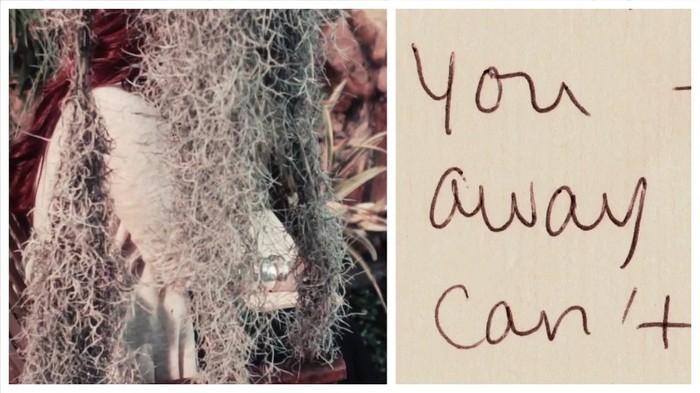 You -
away
can't